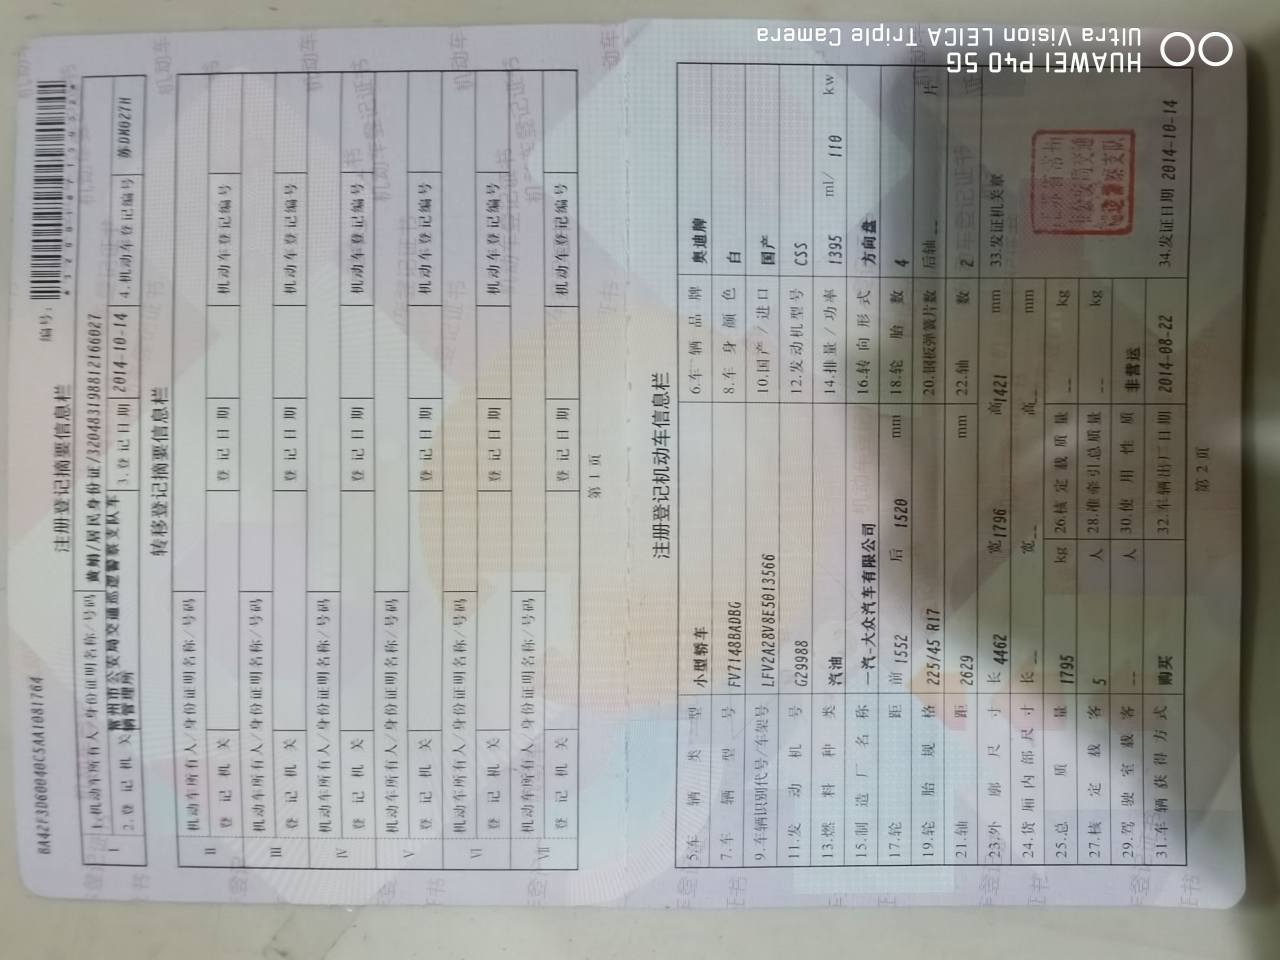 BA42F3D60040C5AA1081764
注册登记摘要信息栏
编号:
Ⅰ 1.机动车所有人/身份证明名称/号码 黄娟/居民身份证/320483198812166027
2.登记机关 常州市公安局交通巡逻警察支队车辆管理所 3.登记日期 2014-10-14 4.机动车登记编号 苏DM027H
转移登记摘要信息栏
Ⅱ 机动车所有人/身份证明名称/号码
登记机关 登记日期 机动车登记编号
Ⅲ 机动车所有人/身份证明名称/号码
登记机关 登记日期 机动车登记编号
Ⅳ 机动车所有人/身份证明名称/号码
登记机关 登记日期 机动车登记编号
Ⅴ 机动车所有人/身份证明名称/号码
登记机关 登记日期 机动车登记编号
Ⅵ 机动车所有人/身份证明名称/号码
登记机关 登记日期 机动车登记编号
Ⅶ 机动车所有人/身份证明名称/号码
登记机关 登记日期 机动车登记编号
第1页
注册登记机动车信息栏
5.车辆类型 小型轿车 6.车辆品牌 奥迪牌
7.车辆型号 FV7148BADBG 8.车身颜色 白
9.车辆识别代号/车架号 LFV2A28V8E5013566 10.国产/进口 国产
11.发动机号 G29988 12.发动机型号 CSS
13.燃料种类 汽油 14.排量/功率 1395 ml/ 110 kw
15.制造厂名称 一汽-大众汽车有限公司 16.转向形式 方向盘
17.轮距 前 1552 后 1520 mm 18.轮胎数 4
19.轮胎规格 225/45 R17 20.钢板弹簧片数 后轴 -- 片
21.轴距 2629 mm 22.轴数 2
23.外廓尺寸 长 4462 宽 1796 高 1421 mm 33.发证机关章
24.货厢内部尺寸 长 -- 宽 -- 高 -- mm
25.总质量 1795 kg 26.核定载质量 -- kg
27.核定载客 5 人 28.准牵引总质量 -- kg
29.驾驶室载客 -- 人 30.使用性质 非营运
31.车辆获得方式 购买 32.车辆出厂日期 2014-08-22 34.发证日期 2014-10-14
第2页
HUAWEI P40 5G
Ultra Vision LEICA Triple Camera